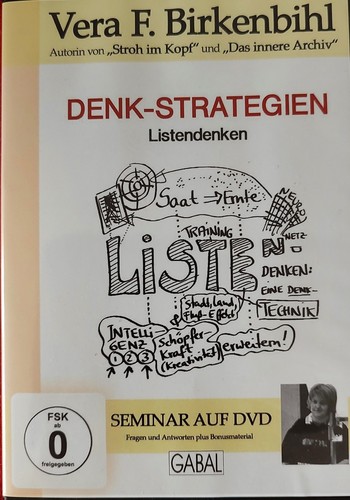 Vera F. Birkenbihl
Autorin von „Stroh im Kopf“ und „Das innere Archiv“
DENK-STRATEGIEN
Listendenken
Saat ⇒ Ernte
NEURO
NETZ-
TRAINING
LiSTEN-
DENKEN:
EINE DENK-
TECHNIK
Stadt, Land,
Fluß-Effekt
INTELLI
GENZ
1 2 3
Schöpfer-
Kraft
(Kreativität)
erweitern!
FSK
ab
0
freigegeben
SEMINAR AUF DVD
Fragen und Antworten plus Bonusmaterial
GABAL